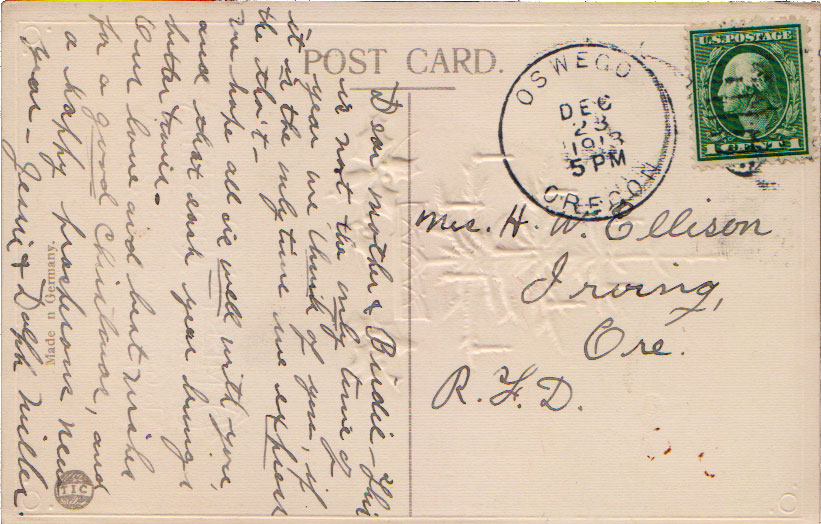 POST CARD.
OSWEGO
DEC
23
1913
5 PM
OREGON
U.S. POSTAGE
1 CENT 1
Dear mother & Birdie - This
is not the only time of
year we think of you, if
it is the only time we express
the tho't -
We hope all is well with you,
and that each year brings
better times.
Our love and best wishes
for a good Christmas, and
a Happy prosperous new
year - Jessie & Dolph Miller.
Mrs. H. W. Ellison
Irving,
Ore.
R.F.D.
Made n Germany.
TIC